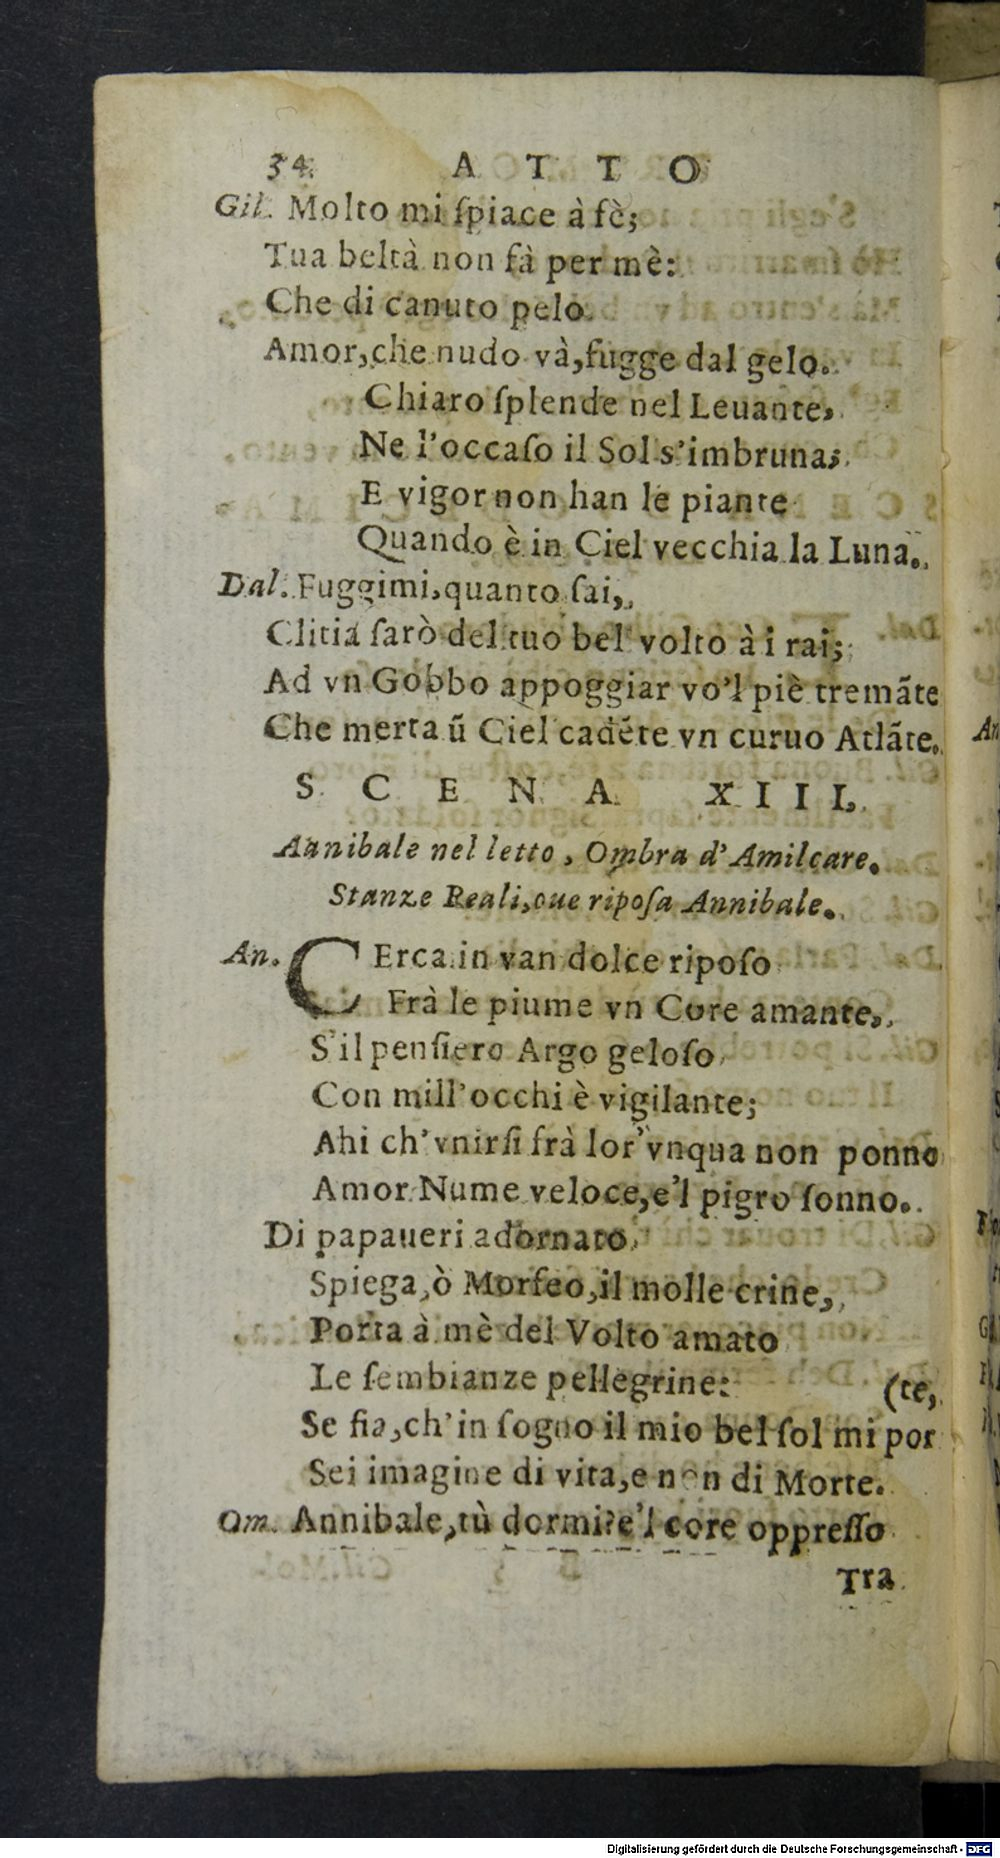 34. A T T O
Gil. Molto mi ſpiace à fè;
Tua beltà non fà per mè:
Che di canuto pelo
Amor,che nudo và,fugge dal gelo.
Chiaro ſplende nel Leuante,
Ne l'occaſo il Sol s'imbruna;
E vigor non han le piante
Quando è in Ciel vecchia la Luna.
Dal. Fuggimi,quanto ſai,
Clitia ſarò del tuo bel volto à i rai;
Ad vn Gobbo appoggiar vo'l piè tremãte
Che merta ũ Ciel cadẽte vn curuo Atlãte.
S C E N A XIII.
Annibale nel letto, Ombra d'Amilcare.
Stanze Reali,oue ripoſa Annibale.
An. CErca in van dolce ripoſo
Frà le piume vn Core amante,
S'il penſiero Argo geloſo
Con mill'occhi è vigilante;
Ahi ch'vnirſi frà lor'vnqua non ponno
Amor Nume veloce,e'l pigro ſonno.
Di papaueri adornato
Spiega,ò Morfeo,il molle crine,
Porta à mè del Volto amato
Le ſembianze pellegrine: (te,
Se fia,ch'in ſogno il mio bel ſol mi por
Sei imagine di vita,e non di Morte.
Om. Annibale,tù dormi?e'l core oppreſſo
Tra
Digitalisierung gefördert durch die Deutsche Forschungsgemeinschaft - DFG